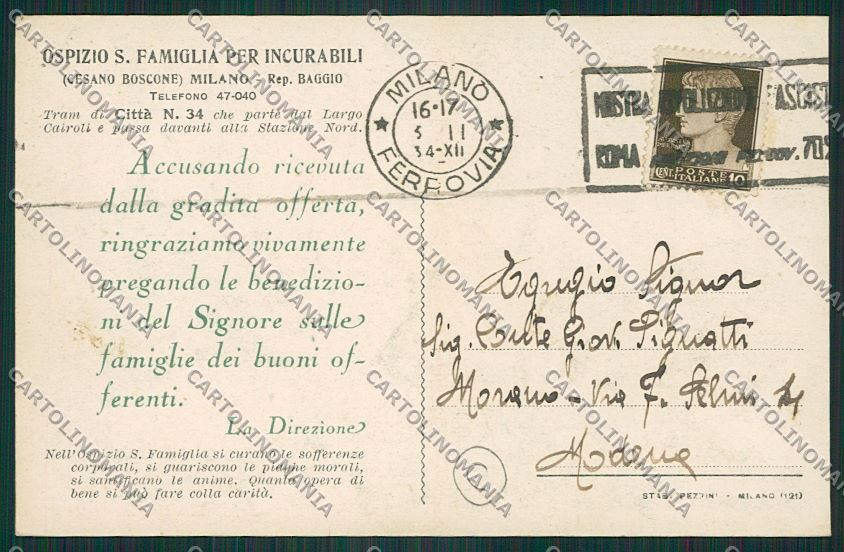 OSPIZIO S. FAMIGLIA PER INCURABILI
(CESANO BOSCONE) MILANO - Rep. BAGGIO
TELEFONO 47-040
Tram di Città N. 34 che parte dal Largo
Cairoli e passa davanti alla Stazione Nord.
Accusando ricevuta
dalla gradita offerta,
ringraziamo vivamente
pregando le benedizio-
ni del Signore sulle
famiglie dei buoni of-
ferenti.
La Direzione
Nell'Ospizio S. Famiglia si curano le sofferenze
corporali, si guariscono le piaghe morali,
si santificano le anime. Quanta opera di
bene si può fare colla carità.
MILANO
16-17
5 II
34-XII
FERROVIA
MOSTRA RIVOLUZIONE FASCISTA
ROMA
70%
CENT. POSTE ITALIANE 10
Egregio Signor
Sig. Conte Giov. Pignatti
Morano - Via F. Selmi 4
Modena
STAB. PEZZINI - MILANO (121)
CARTOLINOMANIA